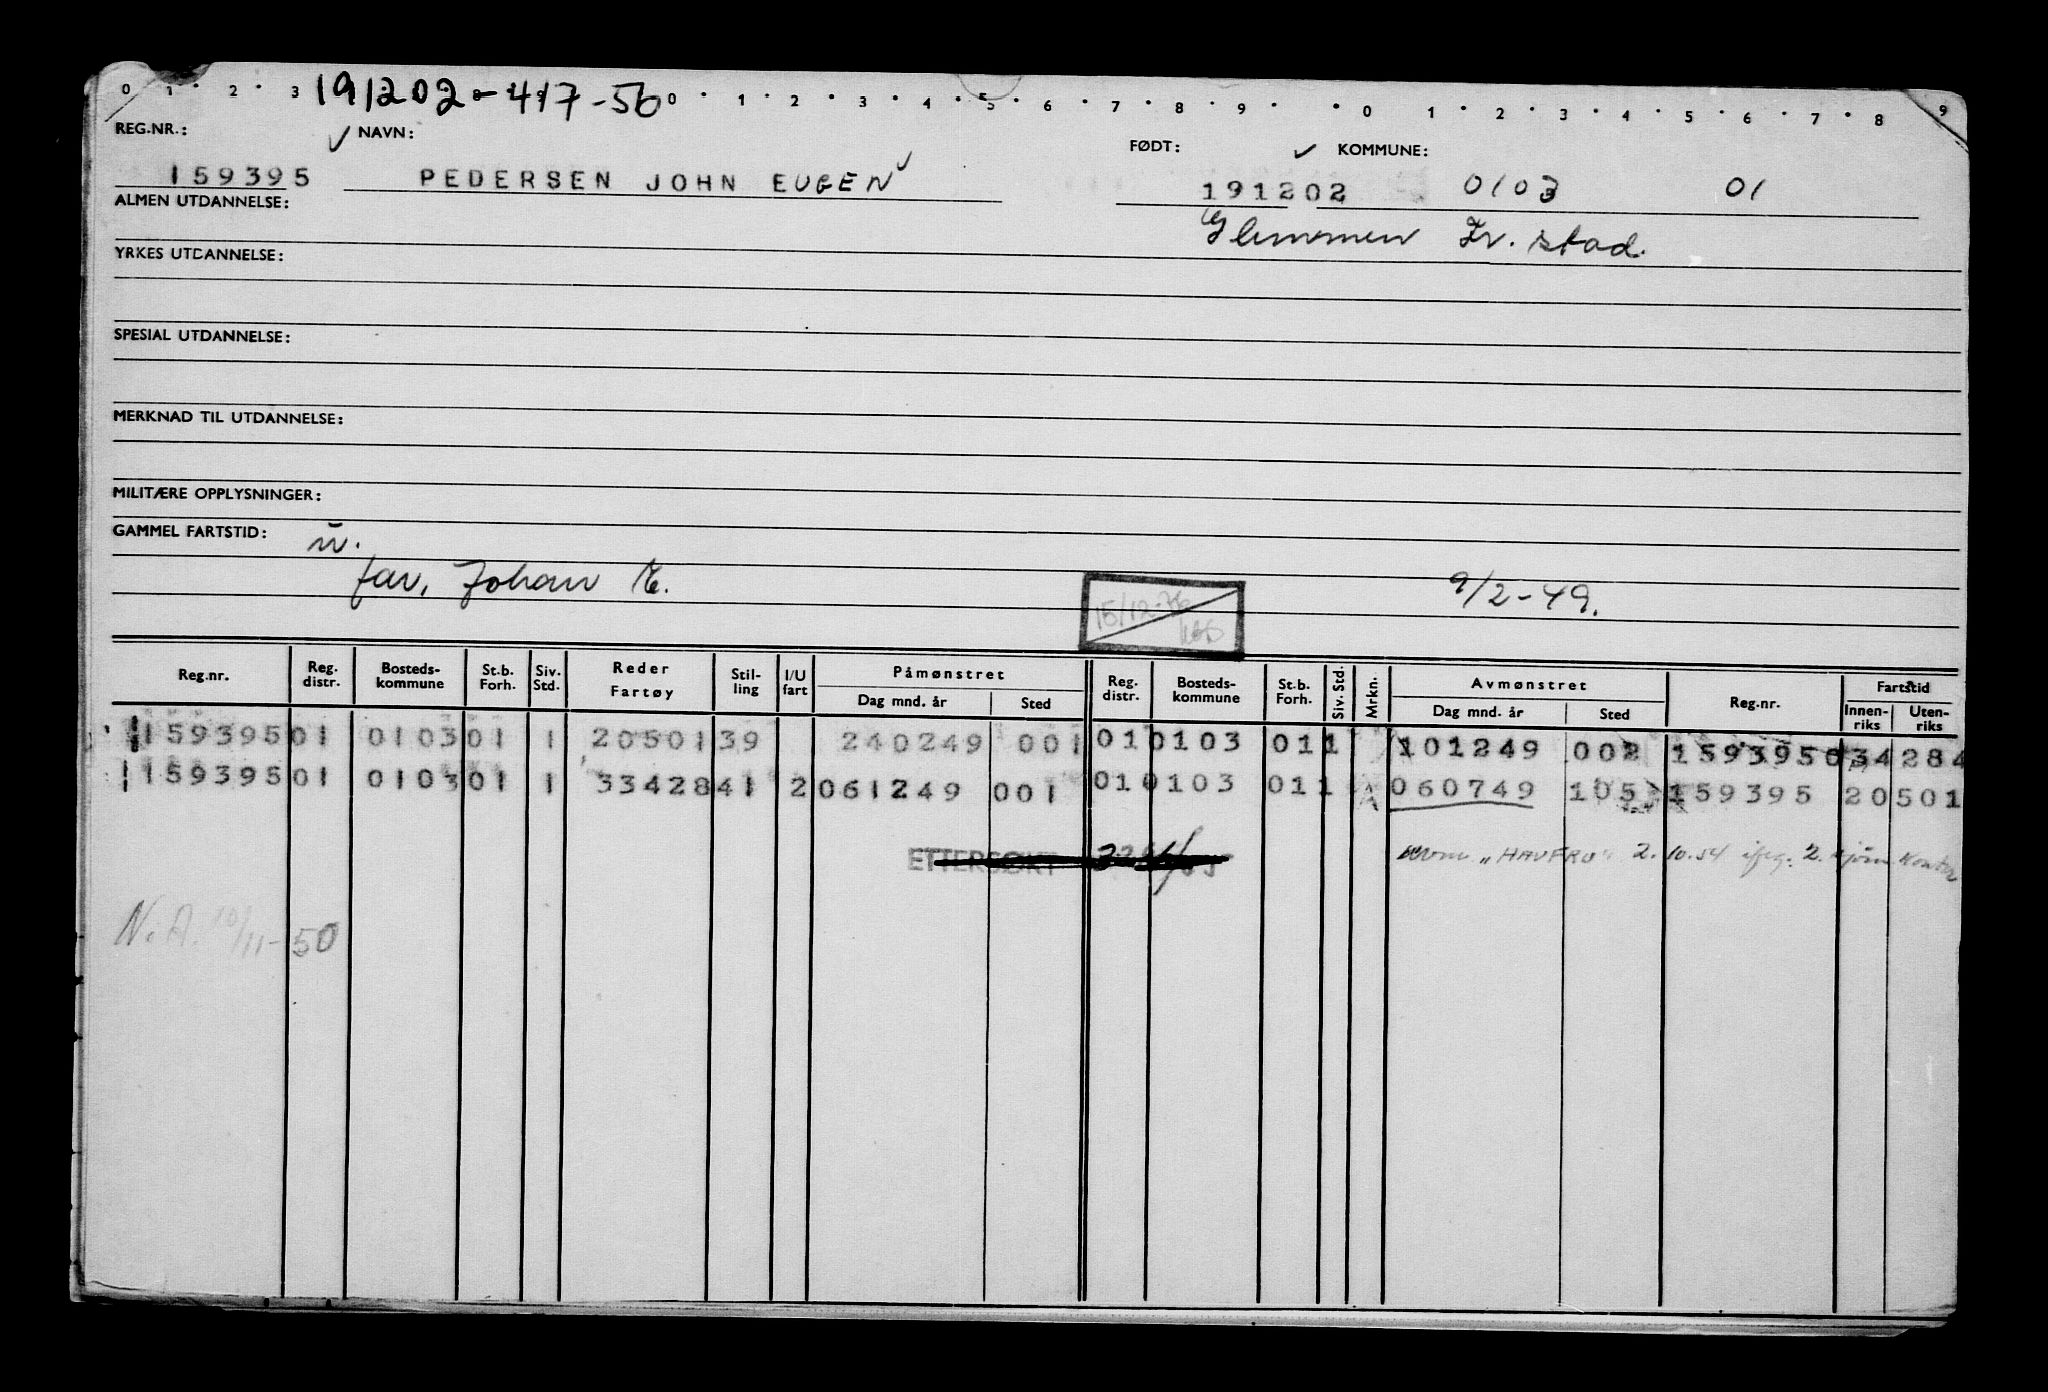 0 1 2 3 191202-417-56 0 1 2 3 4 5 6 7 8 9 0 1 2 3 4 5 6 7 8 9
REG.NR.: NAVN: FØDT: KOMMUNE:
159395 PEDERSEN JOHN EUGEN 191202 0103 01
ALMEN UTDANNELSE: Glemmen Fr. stad.
YRKES UTDANNELSE:
SPESIAL UTDANNELSE:
MERKNAD TIL UTDANNELSE:
MILITÆRE OPPLYSNINGER:
GAMMEL FARTSTID:
far, Johan E. 15/12-76 9/2-49.
Reg.nr. Reg. distr. Bosteds-kommune St.b. Forh. Siv. Std. Reder Fartøy Stil-ling I/U fart Påmønstret Reg. distr. Bosteds-kommune St.b. Forh. Siv. Std. Mrkn. Avmønstret Reg.nr. Fartstid
Dag mnd. år Sted Dag mnd. år Sted Innen-riks Uten-riks
159395 01 0103 01 1 20501 39 240249 001 01 0103 01 1 1 101249 002 159395 034 284
159395 01 0103 01 1 33428 41 2 061249 001 01 0103 01 1 A 060749 105 159395 20501
ETTERSØKT "HAVFRU" 2.10.54
N.A. 10/11-50